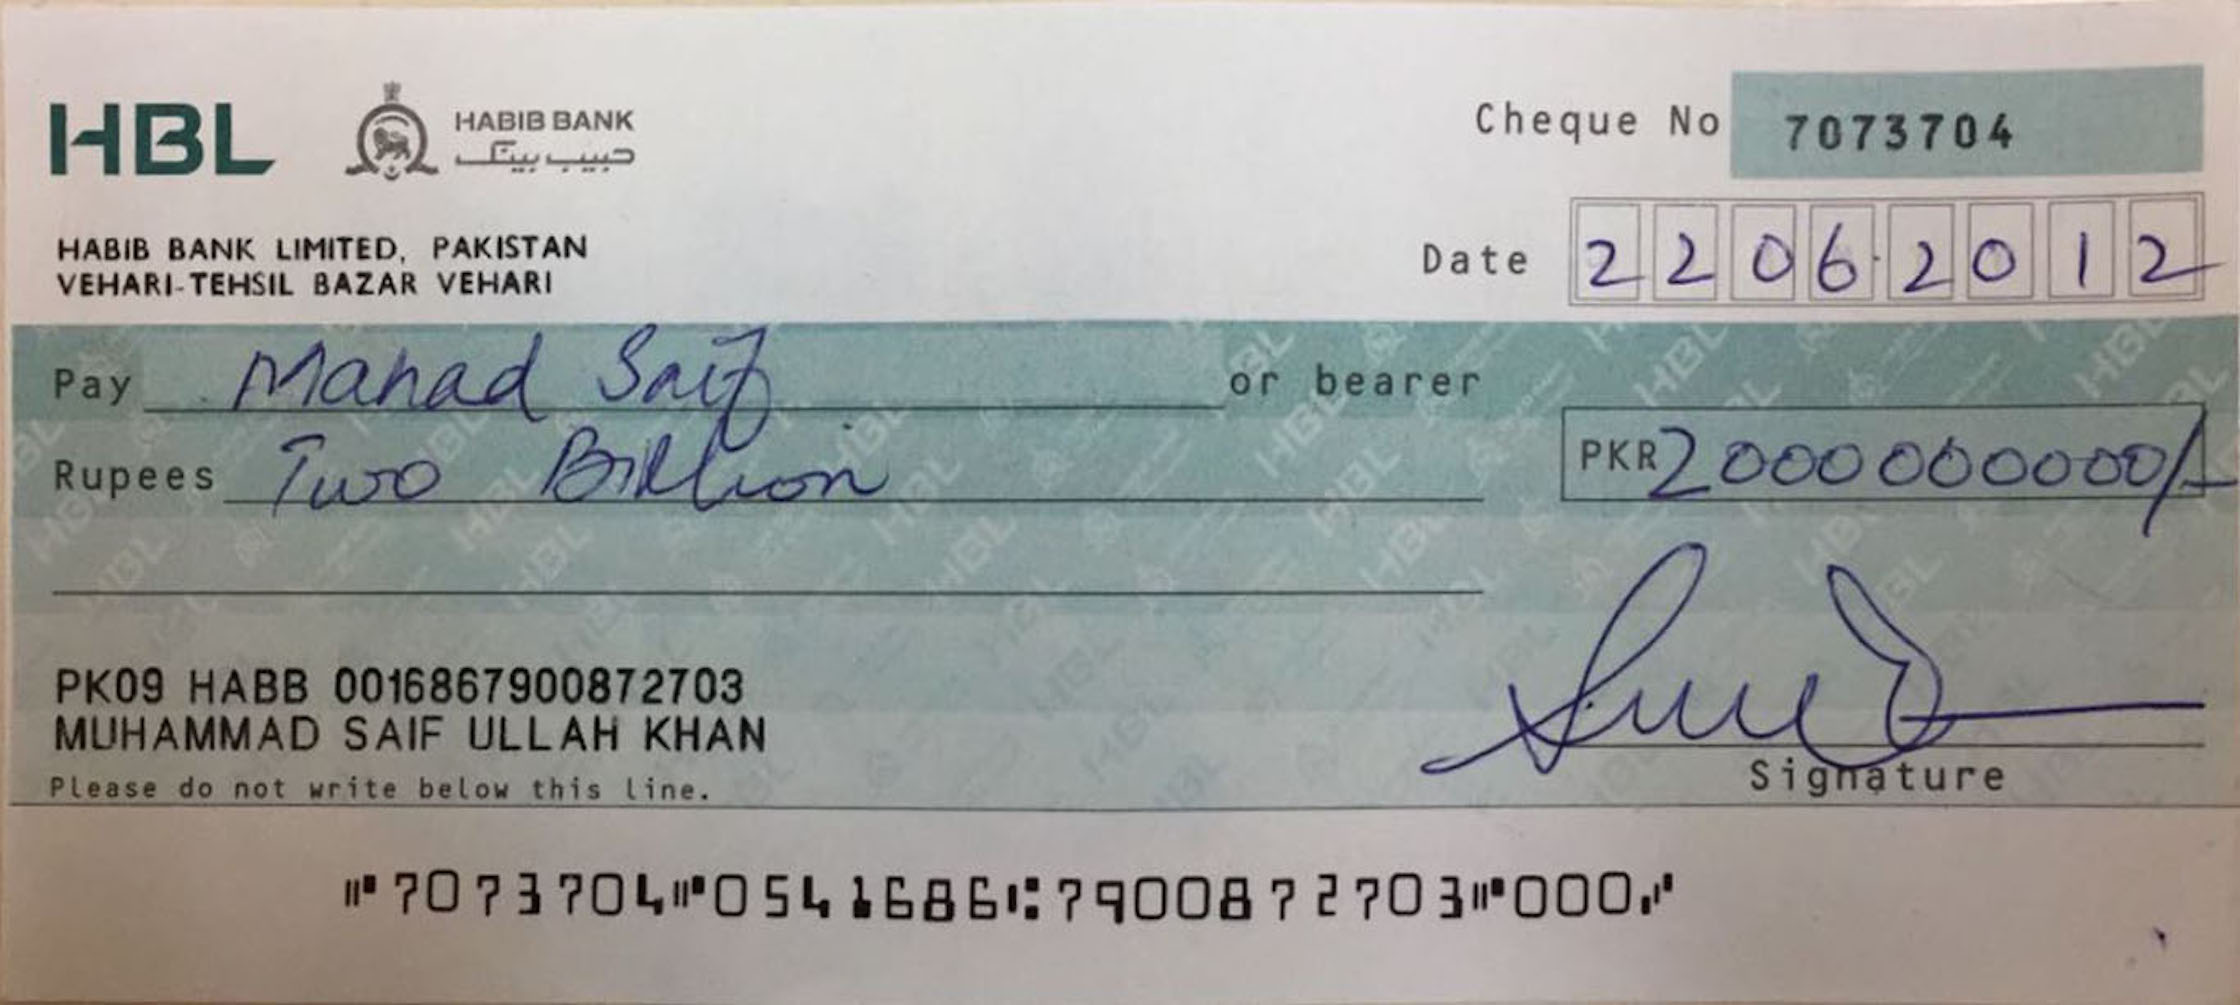 HBL HABIB BANK
حبیب بینک
Cheque No 7073704
HABIB BANK LIMITED, PAKISTAN
VEHARI-TEHSIL BAZAR VEHARI
Date 22062012
Pay Mahad Saif or bearer
Rupees Two Billion PKR 2000000000/-
PK09 HABB 0016867900872703
MUHAMMAD SAIF ULLAH KHAN
Please do not write below this line.
Signature
⑈7073704⑈0541686⑆7900872703⑈000⑇